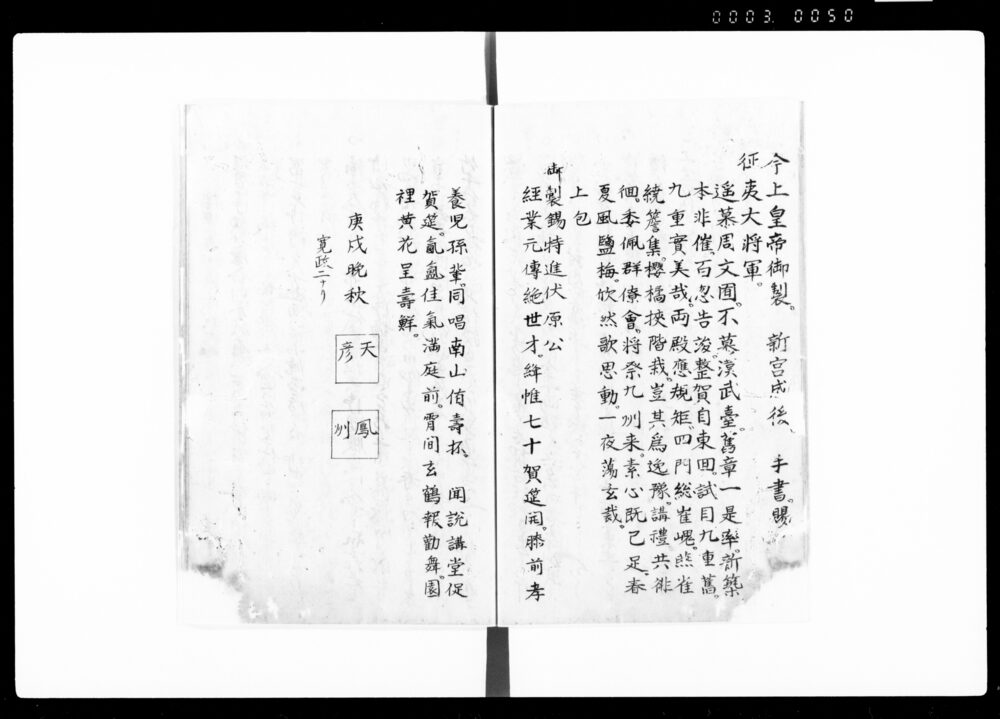 0003 0050
今上皇帝御製。新宮成後、手書。賜
征夷大将軍。
遥慕周文囿。不慕漢武臺。舊章一是率。新築
本非催。百忽告竣。整賀自東回。試目九重舊。
九重實美哉。両殿應規矩。四門総崔嵬。熊雀
繞簷集。櫻橘挾階栽。豈其爲逸豫。講禮共徘
徊。委佩群僚會。将祭九州来。素心既已足。春
夏風鹽梅。欣然歌思動。一夜蕩玄裁
上包
御製錫特進伏原公
經業元傳絶世才。絳帷七十賀筵開。膝前孝
養児孫輩。同唱南山侑壽杯、聞説講堂促
賀筵。氤氳佳氣満庭前。霄間玄鶴報勸舞。園
裡黄花呈壽鮮。
庚戌晩秋
寛政二ナリ
天彦
鳳州